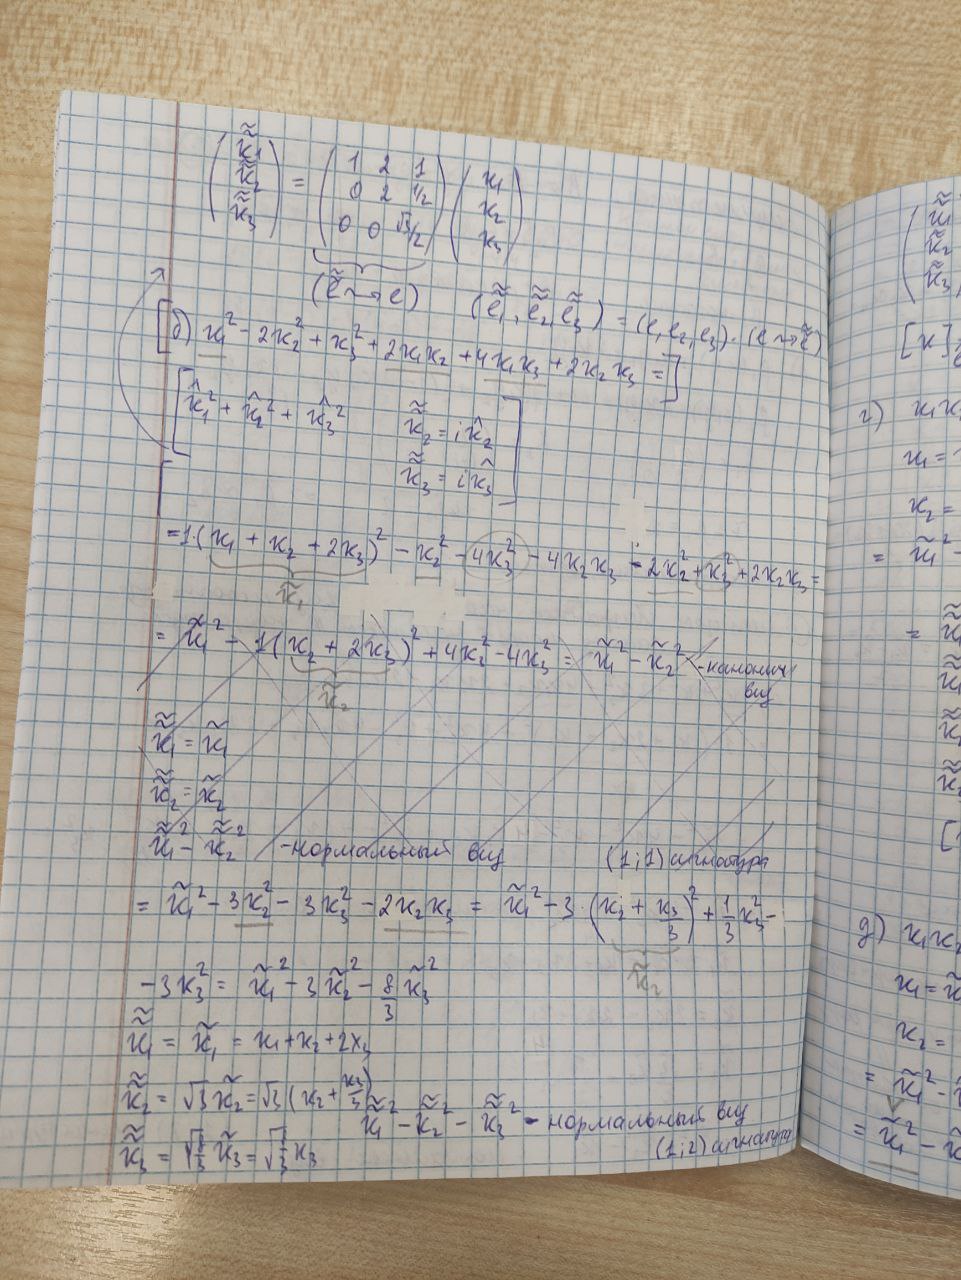 (x̃̃₁ x̃̃₂ x̃̃₃) = (1 2 1; 0 2 1/2; 0 0 √3/2) (x₁ x₂ x₃)
(ẽ̃ ⇝ e) (ẽ̃₁, ẽ̃₂, ẽ̃₃) = (e₁ e₂, e₃) · (e ⇝ ẽ̃)
[б) x₁² - 2x₂² + x₃² + 2x₁x₂ + 4x₁x₃ + 2x₂x₃ =]
[x̂₁² + x̂₂² + x̂₃² x̃̃₂ = i x̂₂
x̃̃₃ = i x̂₃]
= 1·(x₁ + x₂ + 2x₃)² - x₂² - 4x₃² - 4x₂x₃ - 2x₂² + x₃² + 2x₂x₃ =
x̃₁
= x̃₁² - 1(x₂ + 2x₃)² + 4x₃² - 4x₃² = x̃₁² - x̃₂² - каконич
вид
x̃₂
x̃̃₁ = x̃₁
x̃̃₂ = x̃₂
x̃̃₁² - x̃̃₂² - нормальный вид (1;1) сигнатура
= x̃₁² - 3x₂² - 3x₃² - 2x₂x₃ = x̃₁² - 3·(x₂ + x₃/3)² + 1/3 x₃² -
x̃₂
- 3x₃² = x̃₁² - 3x̃₂² - 8/3 x̃₃²
x̃̃₁ = x̃₁ = x₁ + x₂ + 2x₃
x̃̃₂ = √3 x̃₂ = √3 (x₂ + x₃/3)
x̃̃₁² - x̃̃₂² - x̃̃₃² - нормальный вид
(1;2) сигнатура
x̃̃₃ = x̃₃ = x₃
[x]
г) x₁x
x₁ =
x₂ =
= x̃₁² -
=
д) x₁x₂
x₁ = x̃
x₂ =
= x̃₁² -
= x̃₁² - x̃